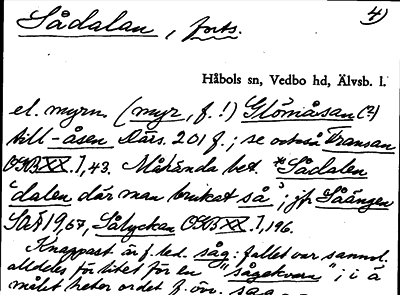 Sådalan, forts.
4)
Håbols sn, Vedbo hd, Älvsb. l.
el. myrn (myr, f.!) Glömåsan (?)
till -åsen Därs. 201 f.; se också Transan
OGB XX. I, 43. Måhända bet. *Sådalen
'dalen där man brukat så'; jfr Såängen
SOÄ 19, 67, Såtyckan OGB XX. I, 196.
Knappast är f. led. såg: fallet var sannol.
alldeles för litet för en "sågekvarn"; i å
målet heter ordet f. övr. sag